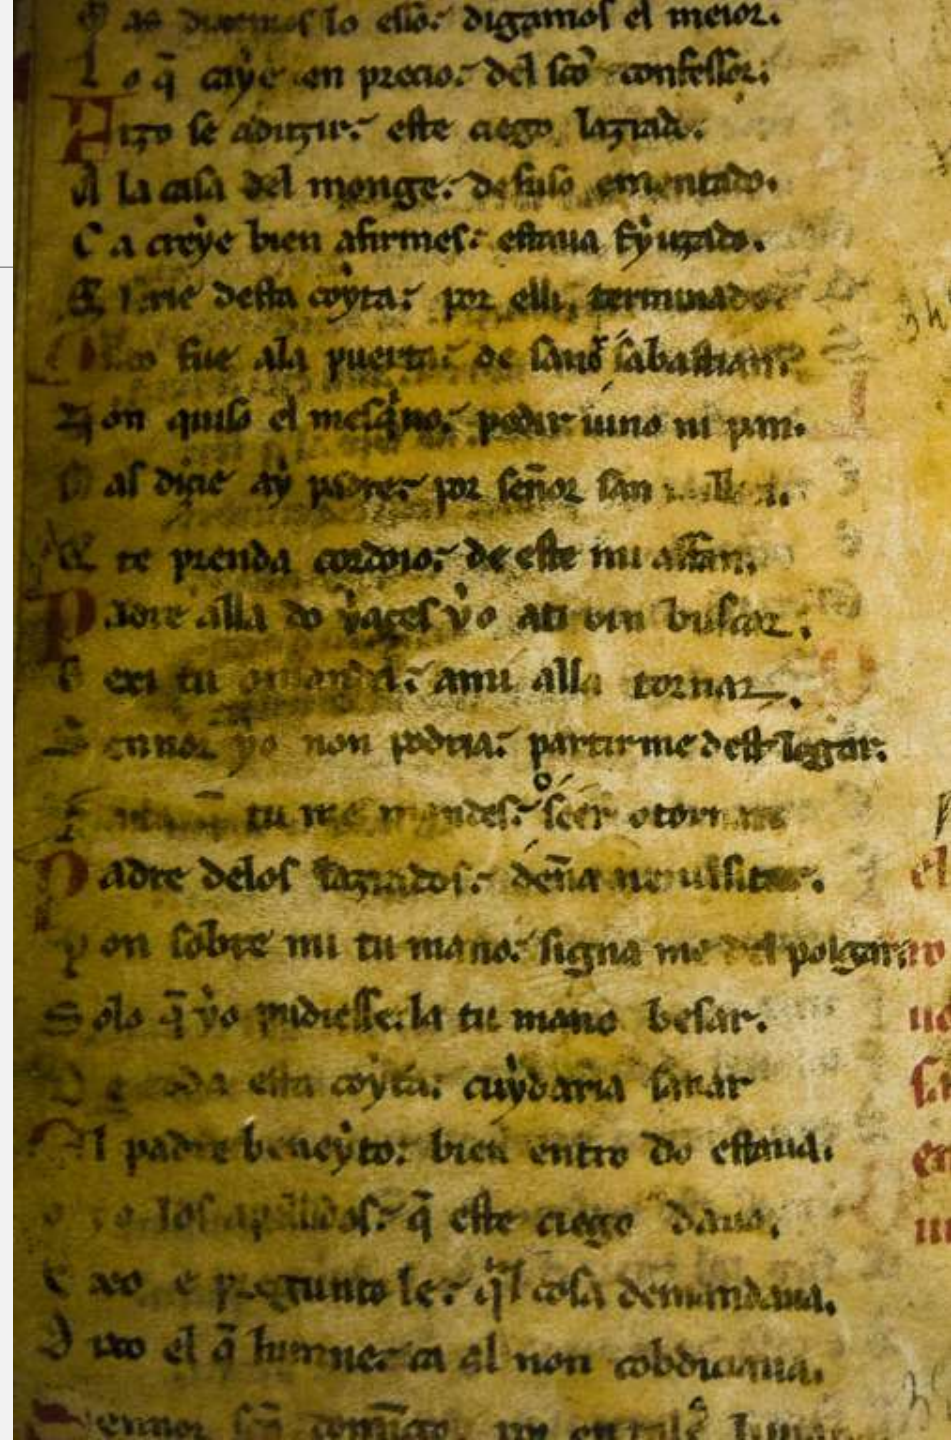 as diremos lo elio: digamos el meior.
L o q̃ caỹe en precio: del sc̃o confessor:
F izo se aduzir: este ciego lazrado:
A la casa del monge: de suso ementado.
C a creỳe bien afirmes: estaua fỳuzado.
desta coỳta: por elli, terminado
fue ala puerta: de sant sabastian:
N on quiso el mesq̃no: pedir uino ni pan.
M as dizie aỳ padre: por señor san
te prenda cordoio: de este mi affan.
P adre alla do ỳazes ỳo ati vin buscar:
exi tu ami alla tornar,
ỳo non podria: partirme dest logar:
tu me mandes: seer o tornar
P adre delos lazrados: deña me uisitar.
P on sobre mi tu mano: signa me del polgar:
S olo q̃ ỳo pudiesse: la tu mano besar.
D e toda esta coỳta: cuỳdaria sanar
E l padre beneỳto: bien entro do estaua.
los apellidos: q̃ este ciego daua.
e pregunto le: q̃l cosa demandaua.
D ixo el q̃ lumne: ca al non cobdiciaua.
Sennor